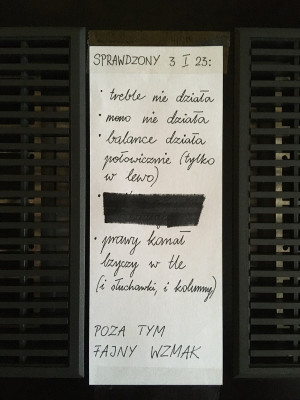 SPRAWDZONY 3 I 23:
• treble nie działa
• mono nie działa
• balance działa
połowicznie (tylko
w lewo)
•
• prawy kanał
bzyczy w tle
(i słuchawki, i kolumny)
POZA TYM
FAJNY WZMAK